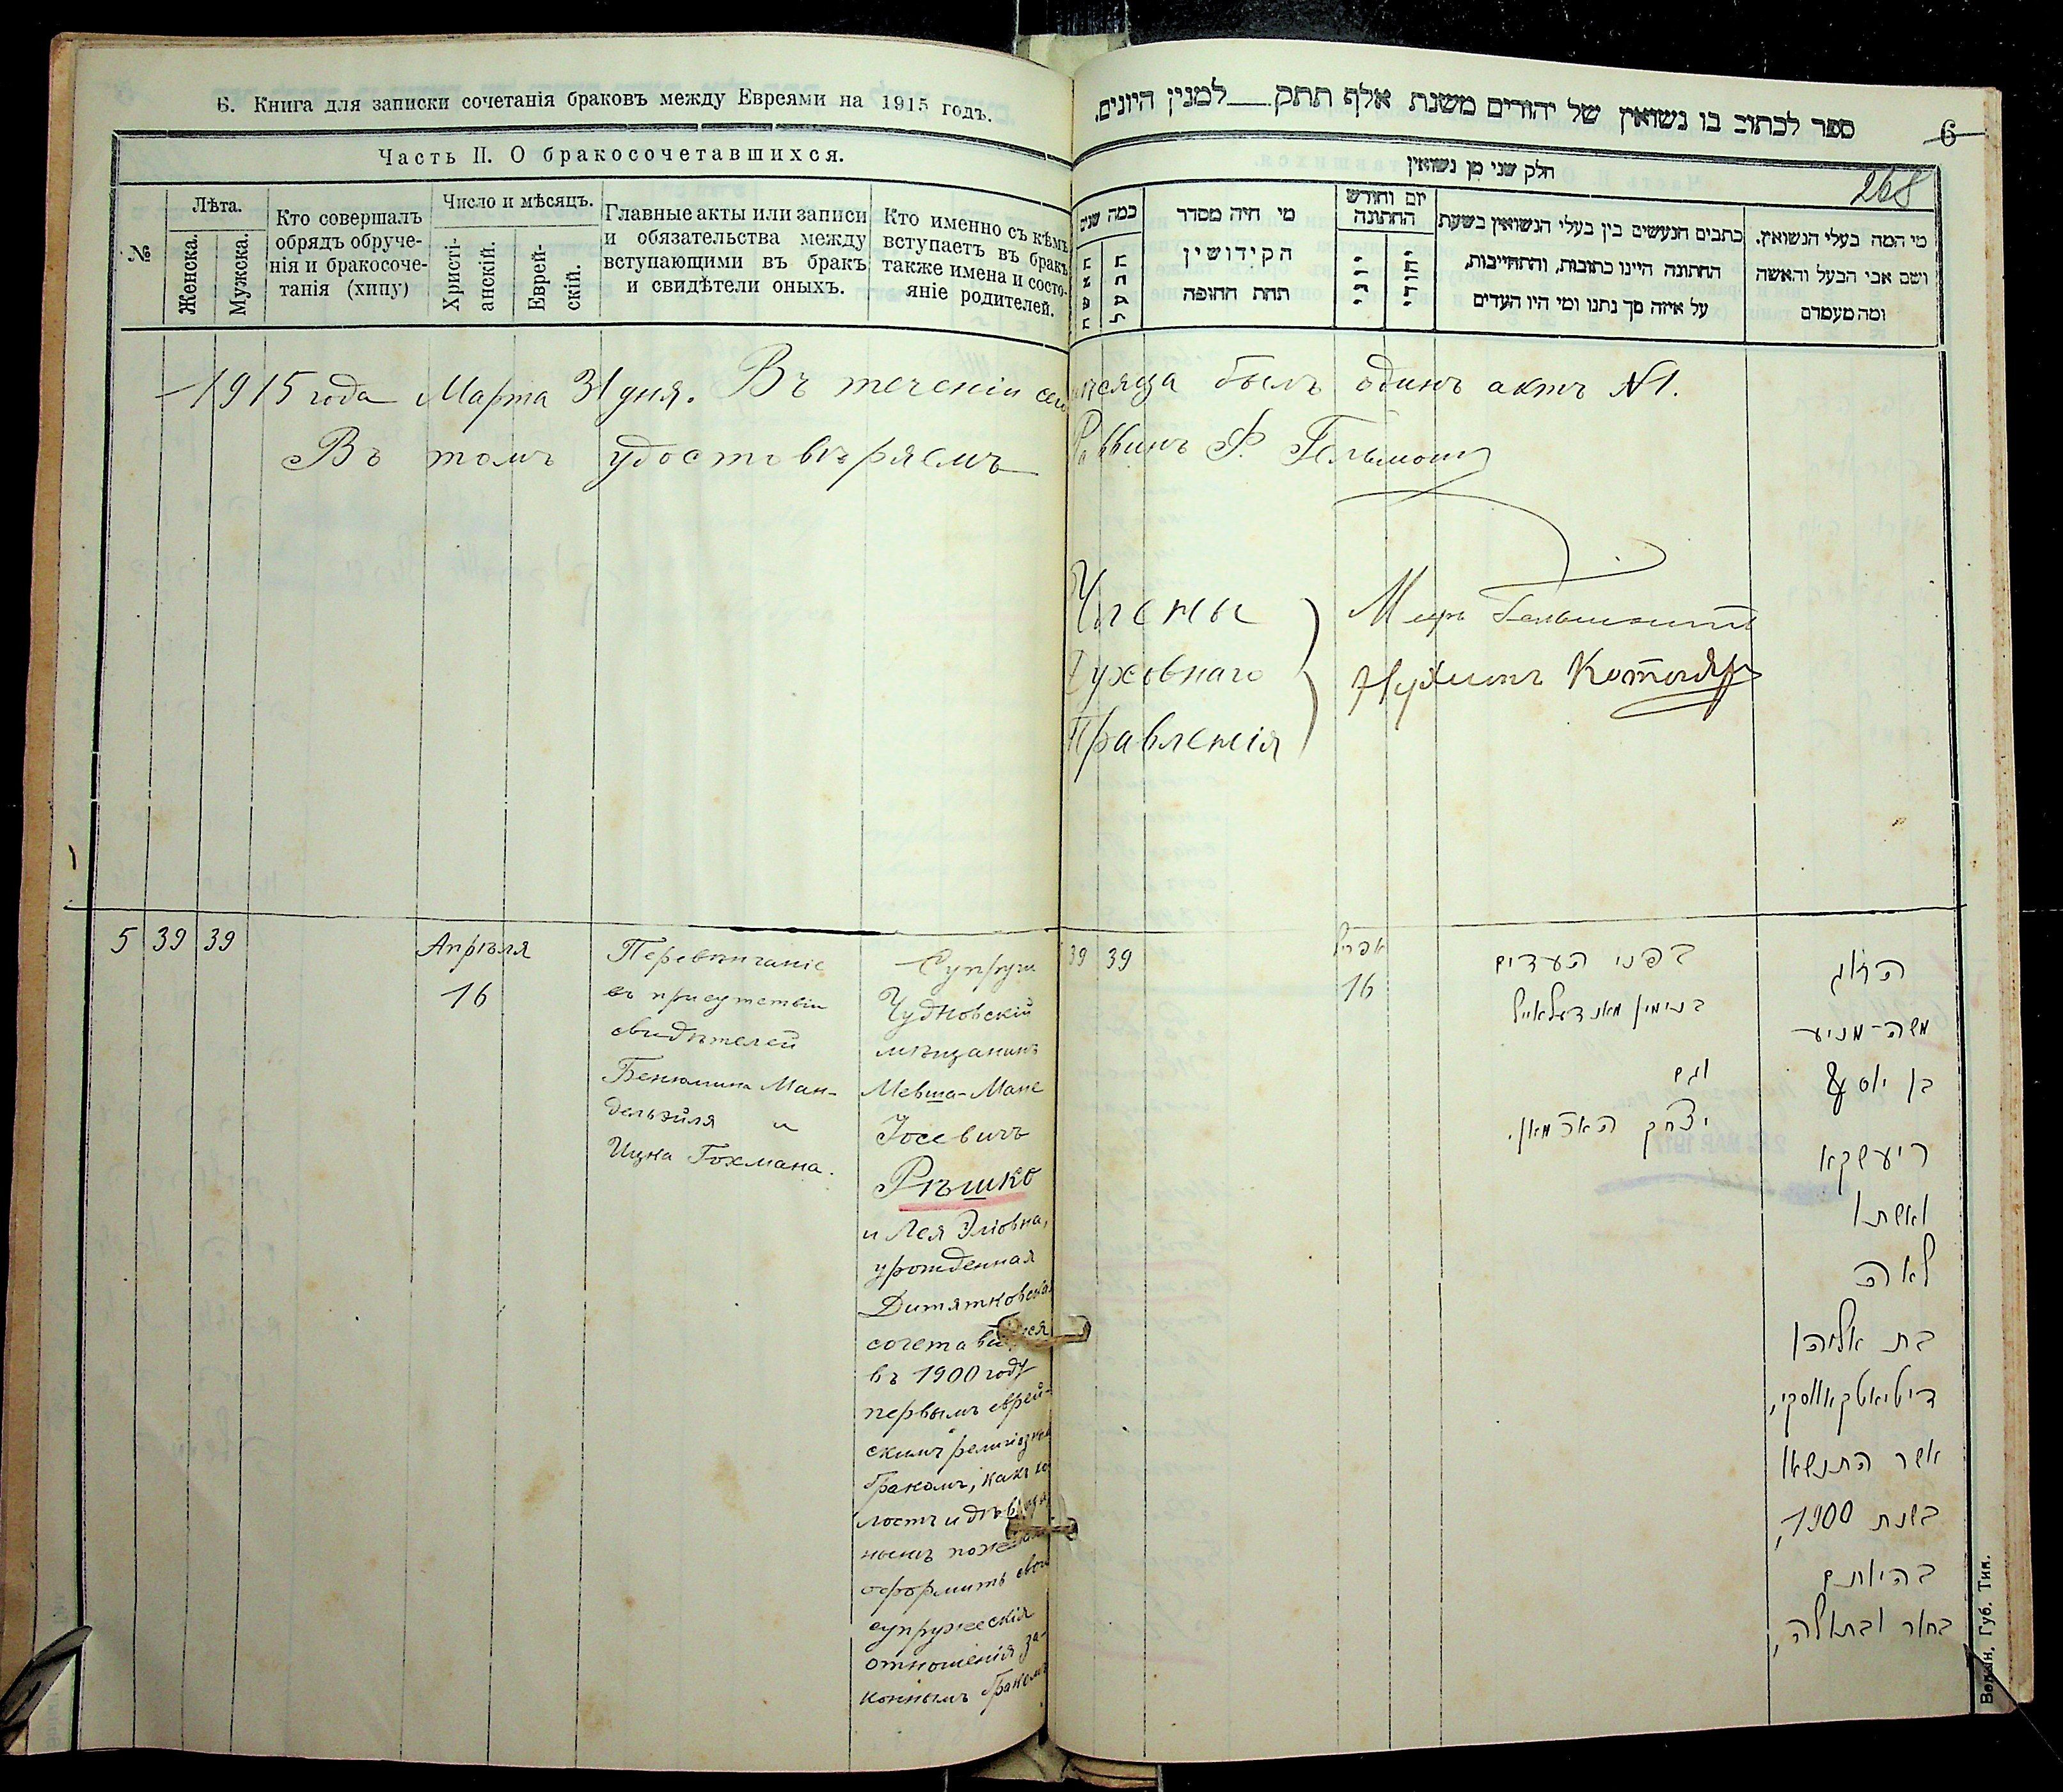 6. Книга для записки сочетанія браковъ между Евреями на 1915 годъ.
Часть II. О бракосочетавшихся.
№
Лѣта.
Женска.
Мужска.
Кто совершалъ
обрядъ обруче-
нія и бракосоче-
танія (хипу)
Число и мѣсяцъ.
Христі-
анскій.
Еврей-
скій.
Главные акты или записи
и обязательства между
вступающими въ бракъ
и свидѣтели оныхъ.
Кто именно съ кѣмъ
вступаетъ въ бракъ
также имена и состо-
яніе родителей.
1915 года Марта 31 дня. Въ теченіи сего мѣсяца былъ одинъ актъ №1.
Въ томъ удостовѣряемъ Раввинъ
Члены
Духовнаго
Правленія
5 39 39
Апрѣля
16
Перевѣнчаніе
въ присутствіи
свидѣтелей
Бенюмина Ман-
дельэйля и
Ицка Гохмана.
Супруги
Чудновскій
мѣщанинъ
Мевша-Мане
Іосевичъ
Рѣшко
и Лея Эліовна,
урожденная
Дитятковская
сочетавшіеся
въ 1900 году
первымъ еврей-
скимъ религіознымъ
бракомъ, какъ хо-
лостъ и дѣвица
оформить свои
супружескія
отношенія за-
коннымъ бракомъ
ספר לכתוב בו נשואין של יהודים משנת אלף תתק למנין היונים.
6
268
חלק שני מן נשואין
כמה שנים
האשה
הבעל
מי היה מסדר
הקידושין
תחת החופה
יום וחודש
החתונה
יוני
יהודי
כתבים הנעשים בין בעלי הנשואין בשעת
החתונה היינו כתובות, והתחייבות,
על איזה סך נתנו ומי היו העדים
מי המה בעלי הנשואין.
ושם אבי הבעל והאשה
ומה מעמדם
39 39
אפריל
16
בפני העדים
בנימין מאנדעלאייל
וגם
יצחק האכמאן.
הזוג
משה-מניע
בן יוסף
ריעשקא
ואשתו
לאה
בת אליהו
דיטיאטקאווסקי,
אשר התנשאו
בשנת 1900,
בהיותם
בחור ובתולה,
Волын. Губ. Тип.